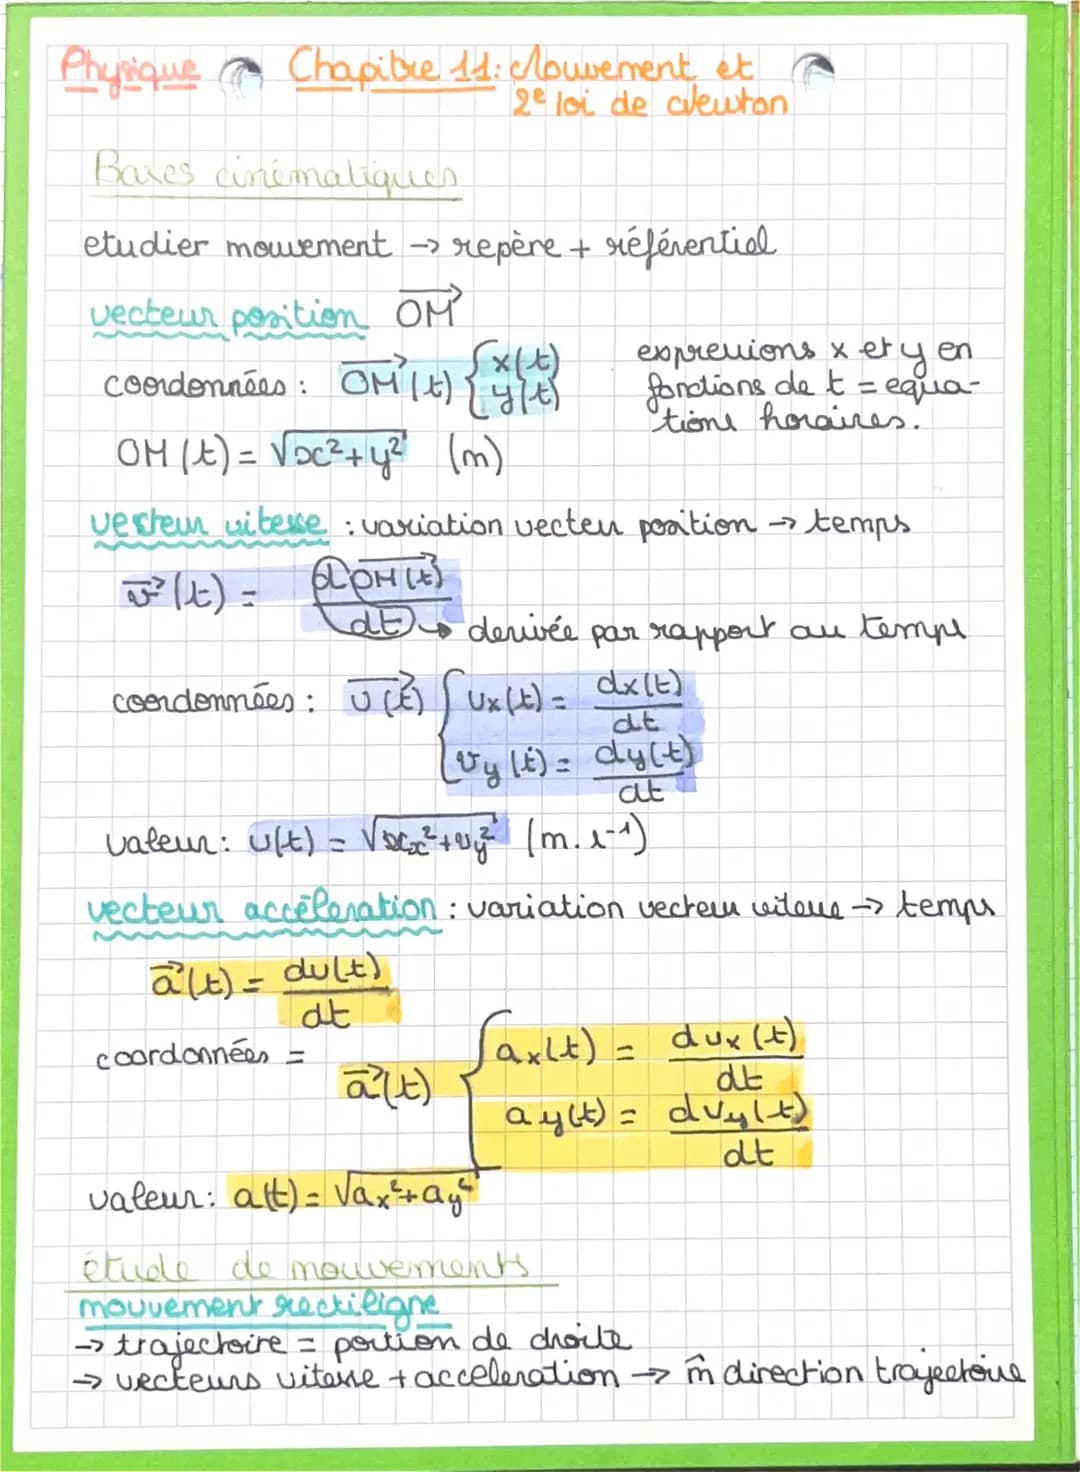 Physique Chapitre 11: Mouvement et
2e loi de Newton
Bases cinématiques
etudier mouvement → repère + référentiel
vecteur position OM⃗
coordonnées : OM⃗(t) { x(t)
y(t)
expressions x et y en
fonctions de t = equa-
tions horaires.
OM(t) = √x²+y² (m)
vecteur vitesse : variation vecteu position → temps
v⃗(t) = dOM⃗(t)
dt → derivée par rapport au temps
coordonnées : v⃗(t) { vx(t) = dx(t)
dt
vy(t) = dy(t)
dt
valeur: v(t) = √vx²+vy² (m.s⁻¹)
vecteur accéleration : variation vecteur vitesse → temps
a⃗(t) = dv(t)
dt
coordonnées =
a⃗(t) { ax(t) = dvx(t)
dt
ay(t) = dvy(t)
dt
valeur: a(t) = √ax²+ay²
étude de mouvements
mouvement rectiligne
→ trajectoire = portion de droite
→ vecteurs vitesse + acceleration → m̂ direction trajectoire